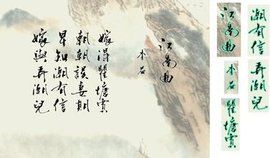 江南曲
李益
嫁得瞿塘賈
朝朝誤妾期
早知潮有信
嫁與弄潮兒
潮有信
江南曲
弄潮兒
李益
瞿塘賈